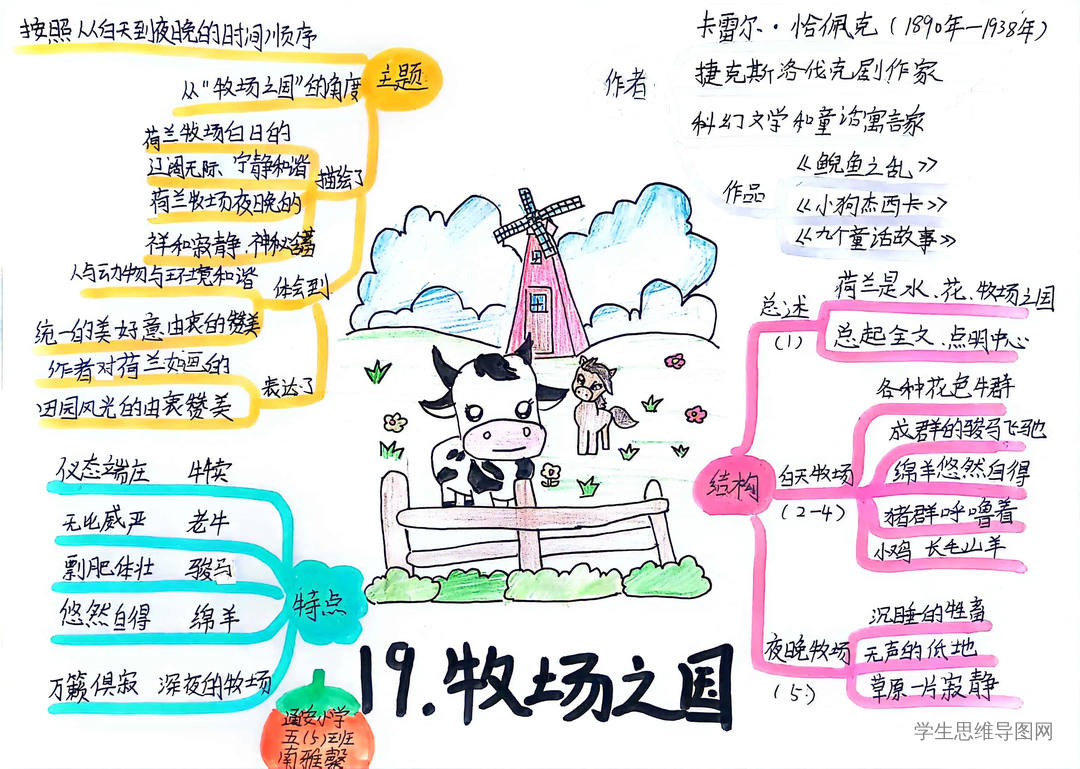 按照从白天到夜晚的时间顺序
主题
从“牧场之国”的角度
荷兰牧场白日的
辽阔无际、宁静和谐
描绘了
荷兰牧场夜晚的
祥和寂静、神秘
人与动物与环境和谐
体会到
统一的美好意由衷的赞美
作者对荷兰如画的
表达了
田园风光的由衷赞美
作者
卡雷尔·恰佩克(1890年—1938年)
捷克斯洛伐克剧作家
科幻文学和童话寓言家
作品
《鲵鱼之乱》
《小狗杰西卡》
《九个童话故事》
结构
总述
(1)
荷兰是水、花、牧场之国
总起全文、点明中心
白天牧场
(2-4)
各种花色牛群
成群的骏马飞驰
绵羊悠然自得
猪群呼噜着
小鸡 长毛山羊
夜晚牧场
(5)
沉睡的牲畜
无声的低地
草原一片寂静
特点
仪态端庄 牛犊
无比威严 老牛
膘肥体壮 骏马
悠然自得 绵羊
万籁俱寂 深夜的牧场
19.牧场之国
通安小学
五(5)班
南雅馨
学生思维导图网